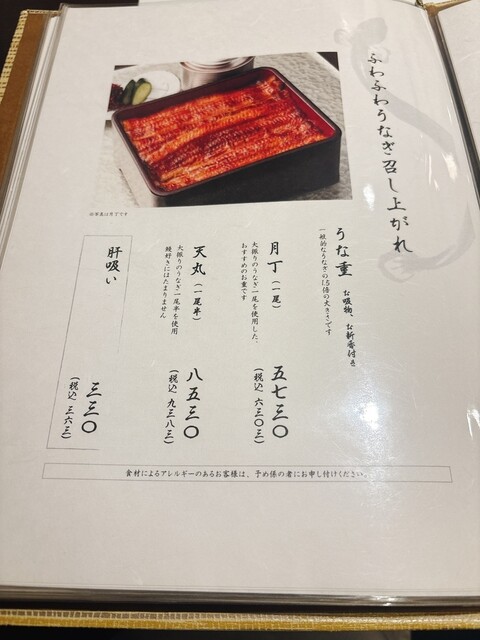 ふわふわうなぎ召し上がれ
※写真は月丁です
うな重 お吸物、お新香付き
一般的なうなぎの1.5倍の大きさです
月丁(一尾) 五七三〇
大振りのうなぎ一尾を使用した、
おすすめのお重です
(税込 六三〇三)
天丸(一尾半) 八五三〇
大振りのうなぎ一尾半を使用
鰻好きにはたまりません
(税込 九三八三)
肝吸い 三三〇
(税込 三六三)
食材によるアレルギーのあるお客様は、予め係の者にお申し付けください。